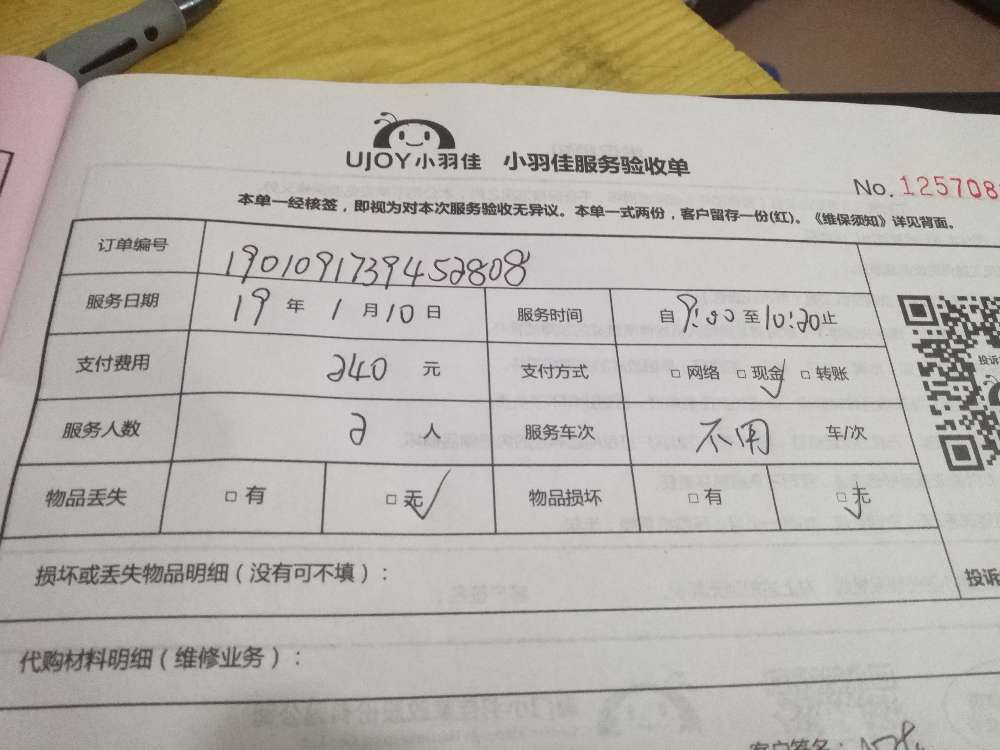 UJOY小羽佳 小羽佳服务验收单
No. 125708
本单一经核签，即视为对本次服务验收无异议。本单一式两份，客户留存一份(红)。《维保须知》详见背面。
订单编号 1901091739452808
服务日期 19 年 1 月 10 日 服务时间 自 9:00 至 10:20 止
支付费用 240 元 支付方式 □ 网络 □ 现金 □ 转账
服务人数 2 人 服务车次 不用 车/次
物品丢失 □ 有 □ 无 物品损坏 □ 有 □ 无
损坏或丢失物品明细（没有可不填）：
投诉
代购材料明细（维修业务）：
客户签名：